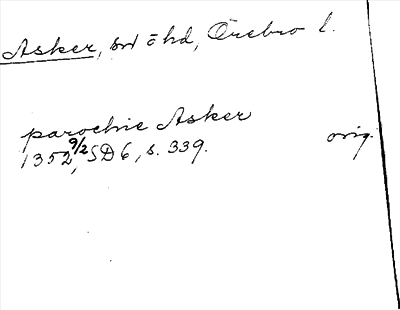 Asker, sn o hd, Örebro l.
parochie Asker
orig.
1352 9/2, SD 6, s. 339.